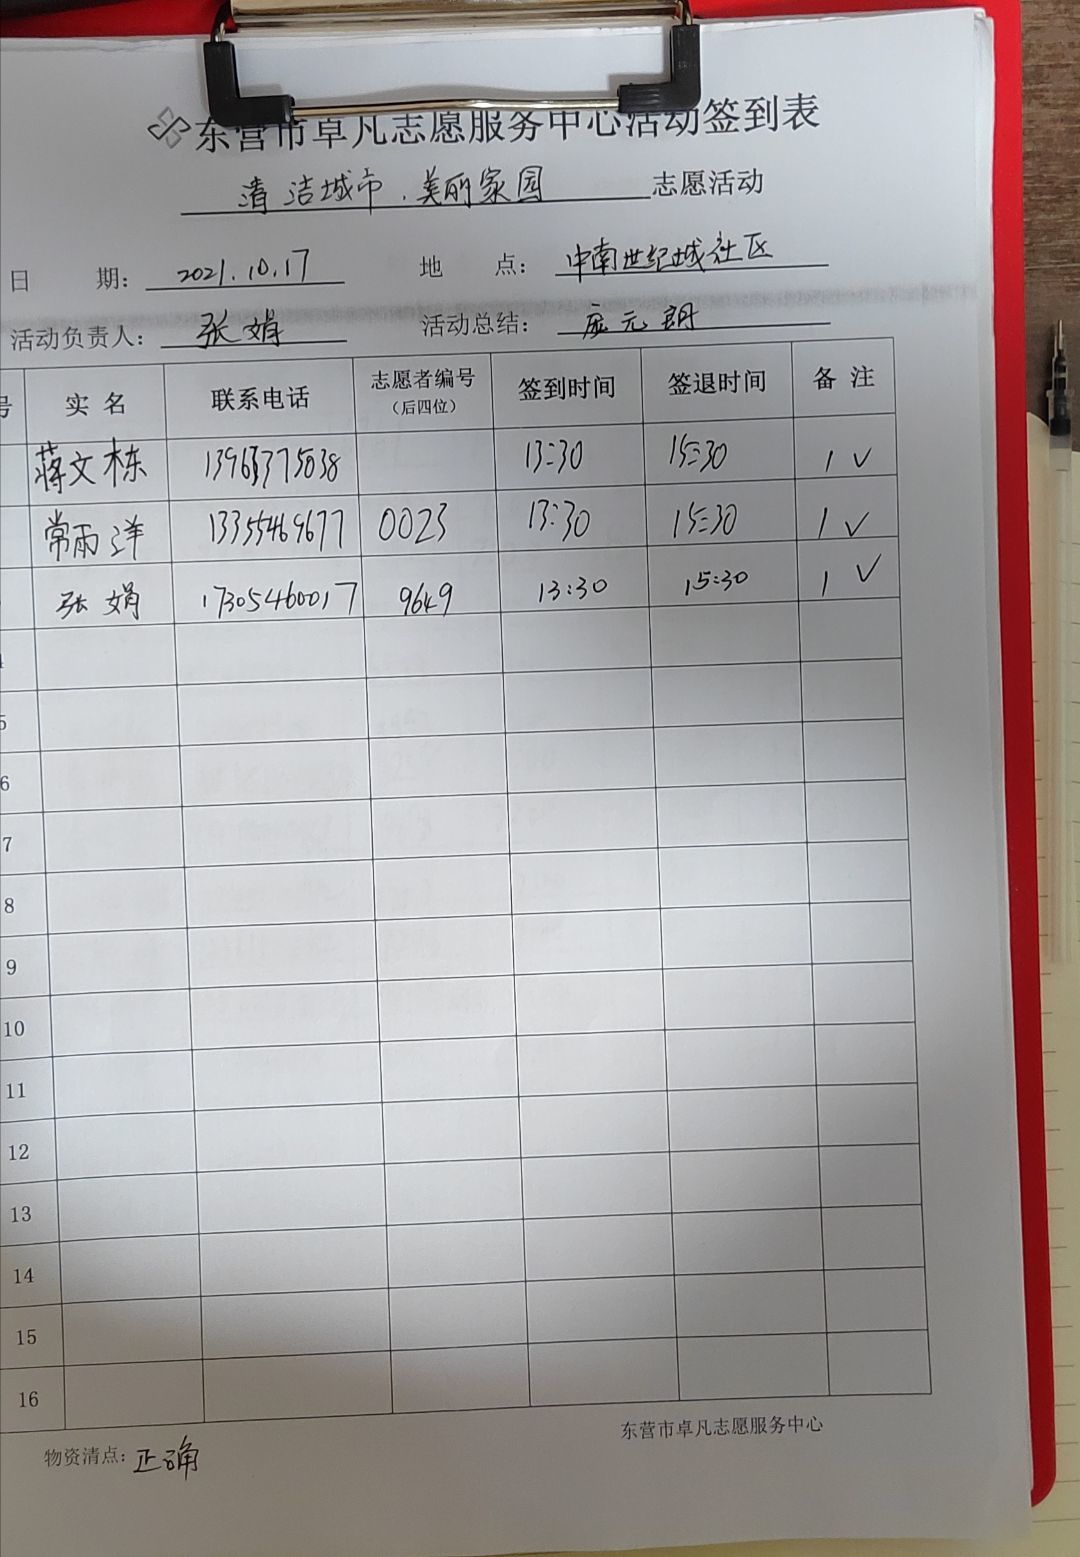 东营市卓凡志愿服务中心活动签到表
清洁城市.美丽家园 志愿活动
日 期: 2021.10.17 地 点: 中南世纪城社区
活动负责人: 张娟 活动总结: 庞元明
号 实名 联系电话 志愿者编号(后四位) 签到时间 签退时间 备注
蒋文栋 13:30 15:30 1 √
常雨洋 13355469677 0023 13:30 15:30 1 √
张娟 17305460017 9649 13:30 15:30 1 √
4
5
6
7
8
9
10
11
12
13
14
15
16
物资清点: 正确 东营市卓凡志愿服务中心